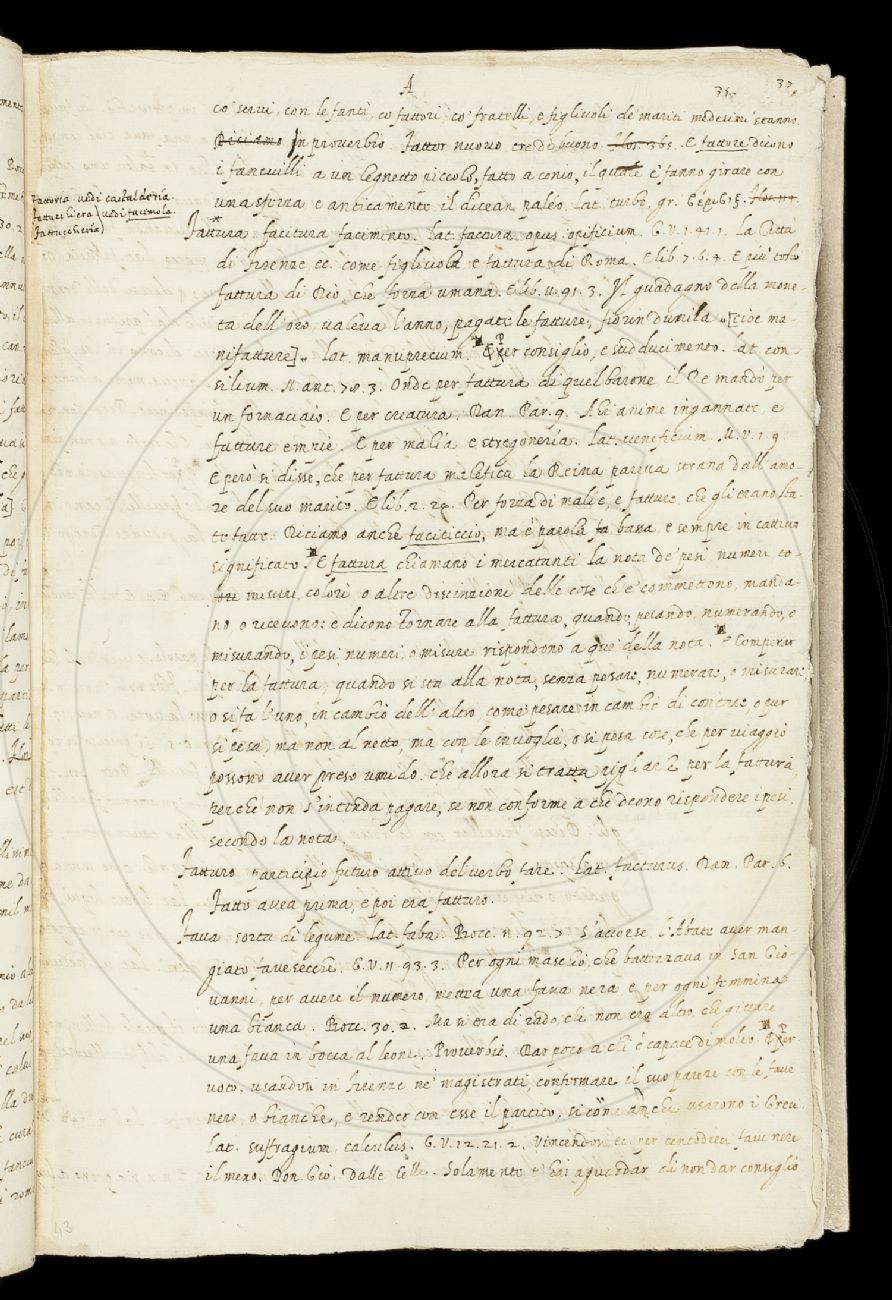 A
35. 37.
co' servi, con le fanti, co' fattori, co' fratelli, e figliuoli de' mariti medesimi stanno.
Diciamo In proverbio. Fattor nuovo tre dì buono. Flos. 365. E fattore dicono
i fanciulli a un legnetto piccolo, fatto a conio, il quale e' fanno girare con
una sferza e anticamente il dicean paléo. Lat. turbo, gr. βέμβιξ.
Fattoria vedi castalderia.
Fattucchiera vedi facimola.
Fattuccheria
Fattura. facitura facimento. Lat. factura, opus, opificium. G. V. 1. 41. 1. La Città
di Firenze ec. come figliuola e fattura di Roma. E lib. 7. 6. 4. E più tosto
fattura di Dio, che forza umana. E lib. 11. 91. 3. Il guadagno della mone-
ta dell'oro valeva l'anno, pagate le fatture, fiorin dumila [cioè ma-
nifatture]. lat. manuprecium. per consiglio, e sudducimento. lat. con-
silium. N. ant. 78. 3. Onde per fattura di quel barone il Re mandò per
un fornaciaio. E per creatura. Dan. Par. 9. Ahi anime ingannate, e
fatture empie. E per malía e stregonería. Lat. veneficium. M. V. 1. 9.
E però si disse, che per fattura malefica la Reina pareva strana dall'amo-
re del suo marito. E lib. 2. 24. Per forza di malíe, e fatture, che gli erano sta-
te fatte. Diciamo anche faciticcio, ma è parola bassa e sempre in cattivo
significato. E fattura chiamano i mercatanti la nota de' pesi numeri co-
lori misure, colori, o altre distinzioni delle cose che e' commettono, manda-
no o ricevono: e dicono Tornare alla fattura, quando, pesando, numerando, e
misurando, i pesi numeri, o misure rispondono a que' della nota. E Comperar
per la fattura, quando si sta alla nota, senza pesare, numerare, o misurare
o si fa l'uno, in cambio dell'altro, come pesare in cambio di contare, o pur
si pesa, ma non al netto, ma con le invoglie, o si pesa cose, che per viaggio
possono aver preso umido. che allora si tratta pigliare per la fattura
perchè non s'intenda pagare, se non conforme a che deono rispondere i pesi,
secondo la nota.
Fatturo. participio futuro attivo del verbo fare. Lat. facturus. Dan. Par. 6.
Fatto avea prima, e poi era fatturo.
Fava sorta di legume. Lat. faba. Bocc. n. 92. 7. S'accorse, l'Abate aver man-
giato fave secche. G. V. 11. 93. 3. Per ogni maschio, che battezzava in San Gio-
vanni, per avere il numero mettea una fava nera e per ogni femmina
una bianca. Bocc. 30. 2. Ma si era di rado, che non era altro, che gittare
una fava in bocca al leone. Proverbio. Dar poco a chi è capace di molto. per
voto, usandosi in Firenze ne' magistrati, confermare il suo parere con le fave
nere, o bianche, e render con esse il partito, sì come anche usarono i Greci.
Lat. suffragium, calculus. G. V. 12. 21. 2. Vincendosi ec. per centodieci fave nere
il meno. Don Gio. dalle Celle. Solamente t'hai a guardar di non dar consiglio
43